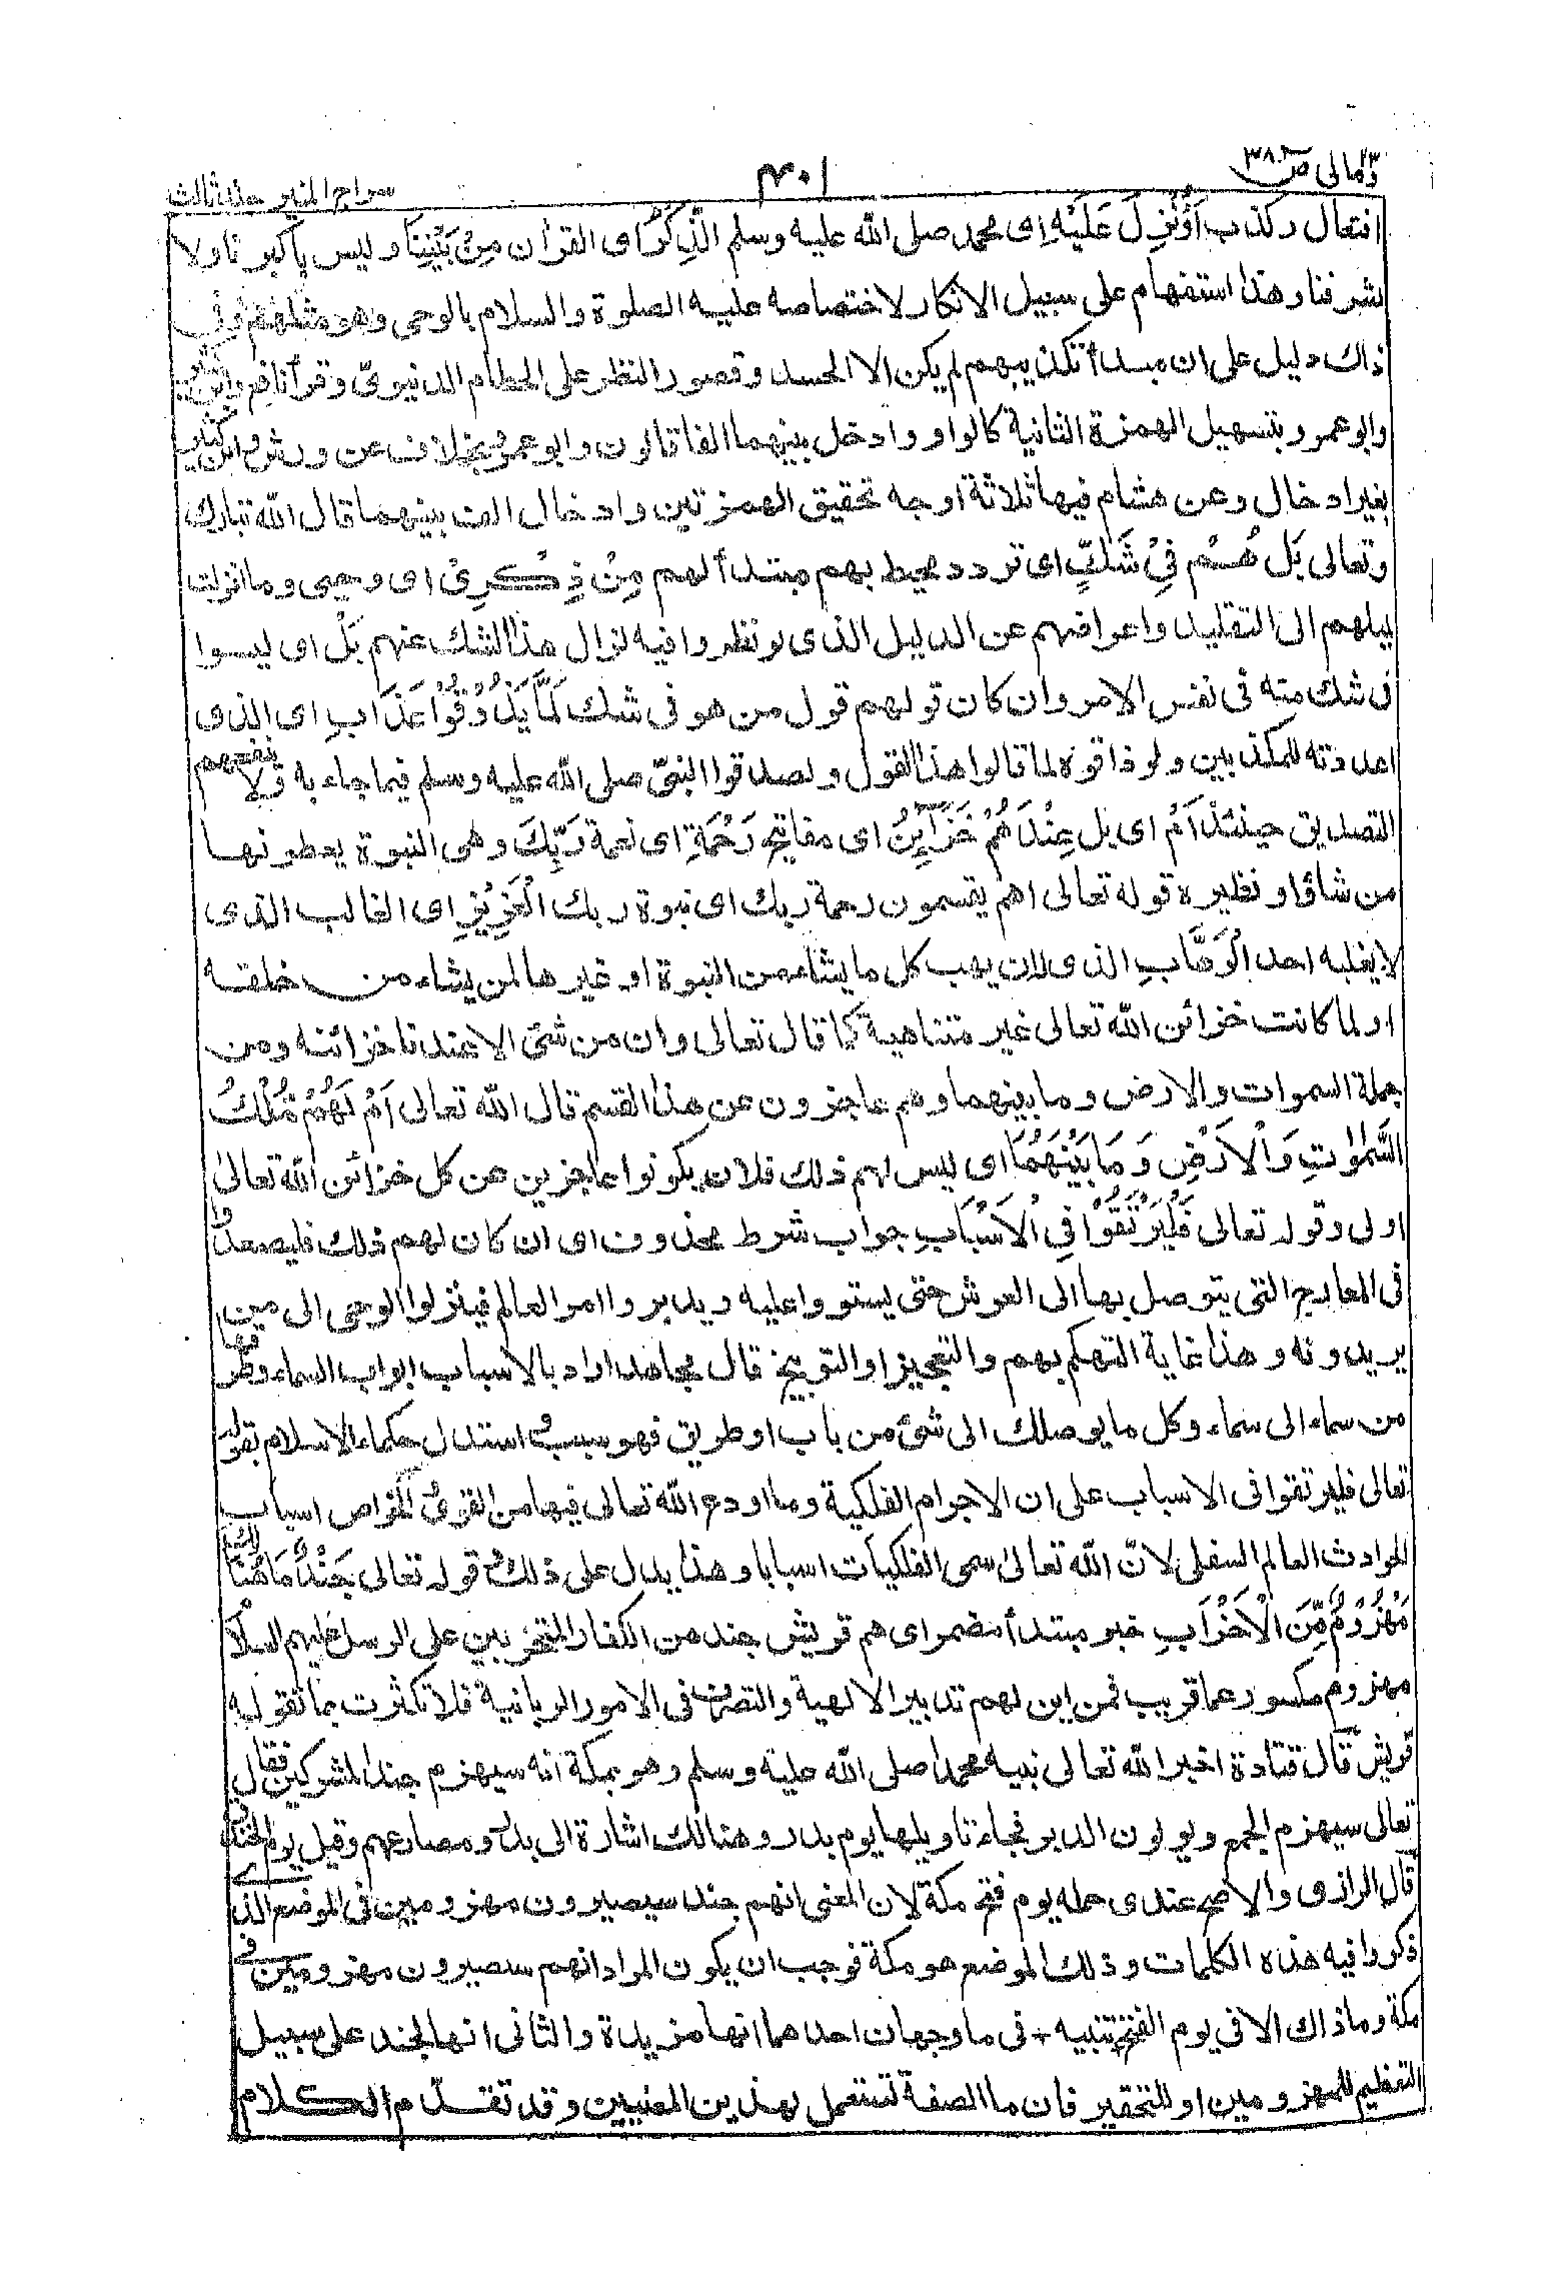 ومالی ص ٣٨
٤٠١
سراج المنیر جلد ثالث
افتعال و کذب اَؤُنْزِلَ عَلَيْهِ ای محمد صلی الله علیه وسلم الذِّكْرُ ای القرآن مِنْ بَيْنِنَا ولیس باکبرنا ولا
بشرفنا وهذا استفهام علی سبیل الانکار لاختصاصه علیه الصلوة والسلام بالوحی وهو مثلهم وفی
ذاك دلیل علی ان مبدأ تکذیبهم لم یکن الا الحسد وقصور النظر علی الحطام الدنیوی وقرأ نافع وابن کثیر
وابو عمرو بتسهیل الهمزة الثانیة کالواو وادخل بینهما الفا قالون وابو عمرو بخلاف عن ورش وابن کثیر
بغیر ادخال وعن هشام فیها ثلاثة اوجه تحقیق الهمزتین وادخال الف بینهما قال الله تبارك
وتعالی بَلْ هُمْ فِيْ شَكٍّ ای تردد محیط بهم مبتدأ لهم مِنْ ذِكْرِيْ ای وحیی وما انزلت
لمیلهم الی التقلید واعراضهم عن الدلیل الذی لو نظروا فیه لزال هذا الشك عنهم بَلْ ای لیسوا
فی شك منه فی نفس الامر وان کان قولهم قول من هو فی شك لَمَّا يَذُوْقُوْا عَذَابِ ای الذی
اعددته للمکذبین ولو ذاقوه لما قالوا هذا القول ولصدقوا النبیّ صلی الله علیه وسلم فیما جاء به ولا ینفعهم
التصدیق حینئذ اَمْ ای بل عِنْدَهُمْ خَزَآئِنُ ای مفاتیح رَحْمَةِ ای نعمة رَبِّكَ وهی النبوة یعطونها
من شاؤا ونظیره قوله تعالی اهم یقسمون رحمة ربك ای نبوة ربك الْعَزِيْزِ ای الغالب الذی
لا یغلبه احد الْوَهَّابِ الذی له ان یهب کل ما یشاء من النبوة او غیرها لمن یشاء من خلقه
ولما کانت خزائن الله تعالی غیر متناهیة کما قال تعالی وان من شئ الا عندنا خزائنه ومن
جملة السموات والارض وما بینهما وهم عاجزون عن هذا القسم قال الله تعالی اَمْ لَهُمْ مُلْكُ
السَّمٰوٰتِ وَالْاَرْضِ وَمَا بَيْنَهُمَا ای لیس لهم ذلك فلان یکونوا عاجزین عن کل خزائن الله تعالی
اولی وقوله تعالی فَلْيَرْتَقُوْا فِي الْاَسْبَابِ جواب شرط محذوف ای ان کان لهم ذلك فلیصعدوا
فی المعارج التی یتوصل بها الی العرش حتی یستووا علیه ویدبروا امر العالم فینزلوا الوحی الی من
یریدونه وهذا غایة التهکم بهم والتعجیز او التوبیخ قال مجاهد اراد بالاسباب ابواب السماء وطرقها
من سماء الی سماء وکل ما یوصلك الی شئ من باب او طریق فهو سبب و استدل حکماء الاسلام بقوله
تعالی فلیرتقوا فی الاسباب علی ان الاجرام الفلکیة وما اودع الله تعالی فیها من القوی والخواص اسباب
لحوادث العالم السفلی لانّ الله تعالیٰ سمی الفلکیات اسبابا وهذا یدل علی ذلك و قوله تعالی جُنْدٌ مَا هُنَالِكَ
مَهْزُوْمٌ مِّنَ الْاَحْزَابِ خبر مبتدأ مضمر ای هم قریش جند من الکفار المتحزبین علی الرسل علیهم السلام
مهزوم مکسور عما قریب فمن این لهم تدابیر الالهیة والتصرف فی الامور الربانیة فلا تکترث بما تقوله
قریش قال قتادة اخبر الله تعالی نبیه محمدا صلی الله علیه وسلم وهو بمکة انه سیهزم جند المشرکین فقال
تعالی سیهزم الجمع ویولون الدبر فجاء تاویلها یوم بدر وهنالك اشارة الی بدر ومصارعهم وقیل یوم الخندق
قال الرازی والاصح عندی حمله یوم فتح مکة لان المعنی انهم جند سیصیرون مهزومین فی الموضع الذی
ذکروا فیه هذه الکلمات وذلك الموضع هو مکة فوجب ان یکون المراد انهم سیصیرون مهزومین فی
مکة وما ذاك الا فی یوم الفتح تنبیه + فی ما وجهان احدهما انها مزیدة والثانی انها لجند علی سبیل
التعظیم للمهزومین او للتحقیر فان ما الصفة تستعمل بهذین المعنیین وقد تقدّم الکلام